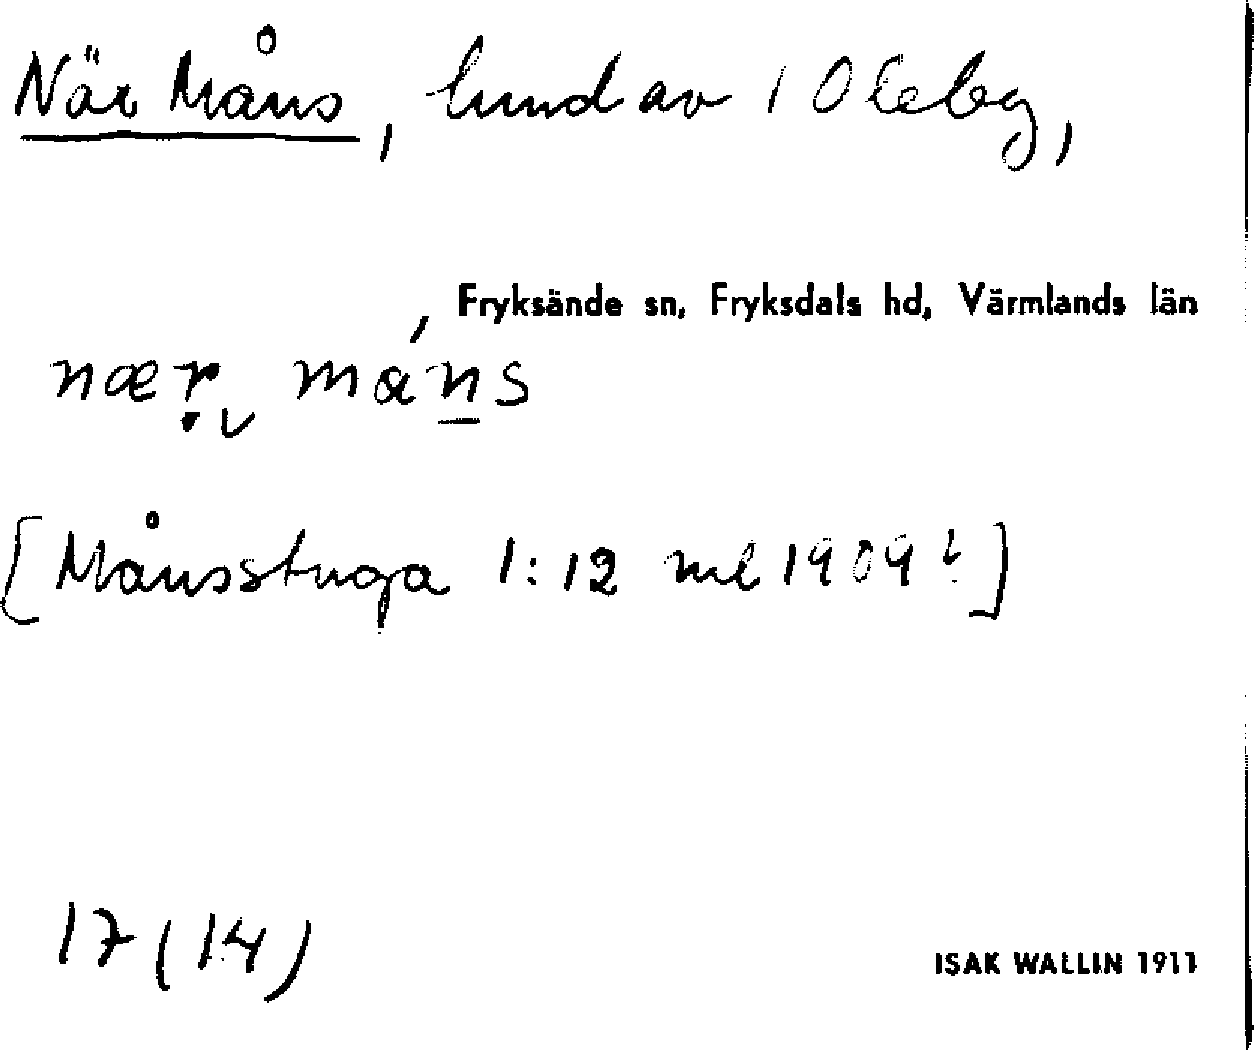 När Måns, hmd av 1 Oleby,
Fryksände sn, Fryksdals hd, Värmlands län
nær måns
[Månsstuga 1:12 ml 1909 !]
17 (14)
ISAK WALLIN 1911